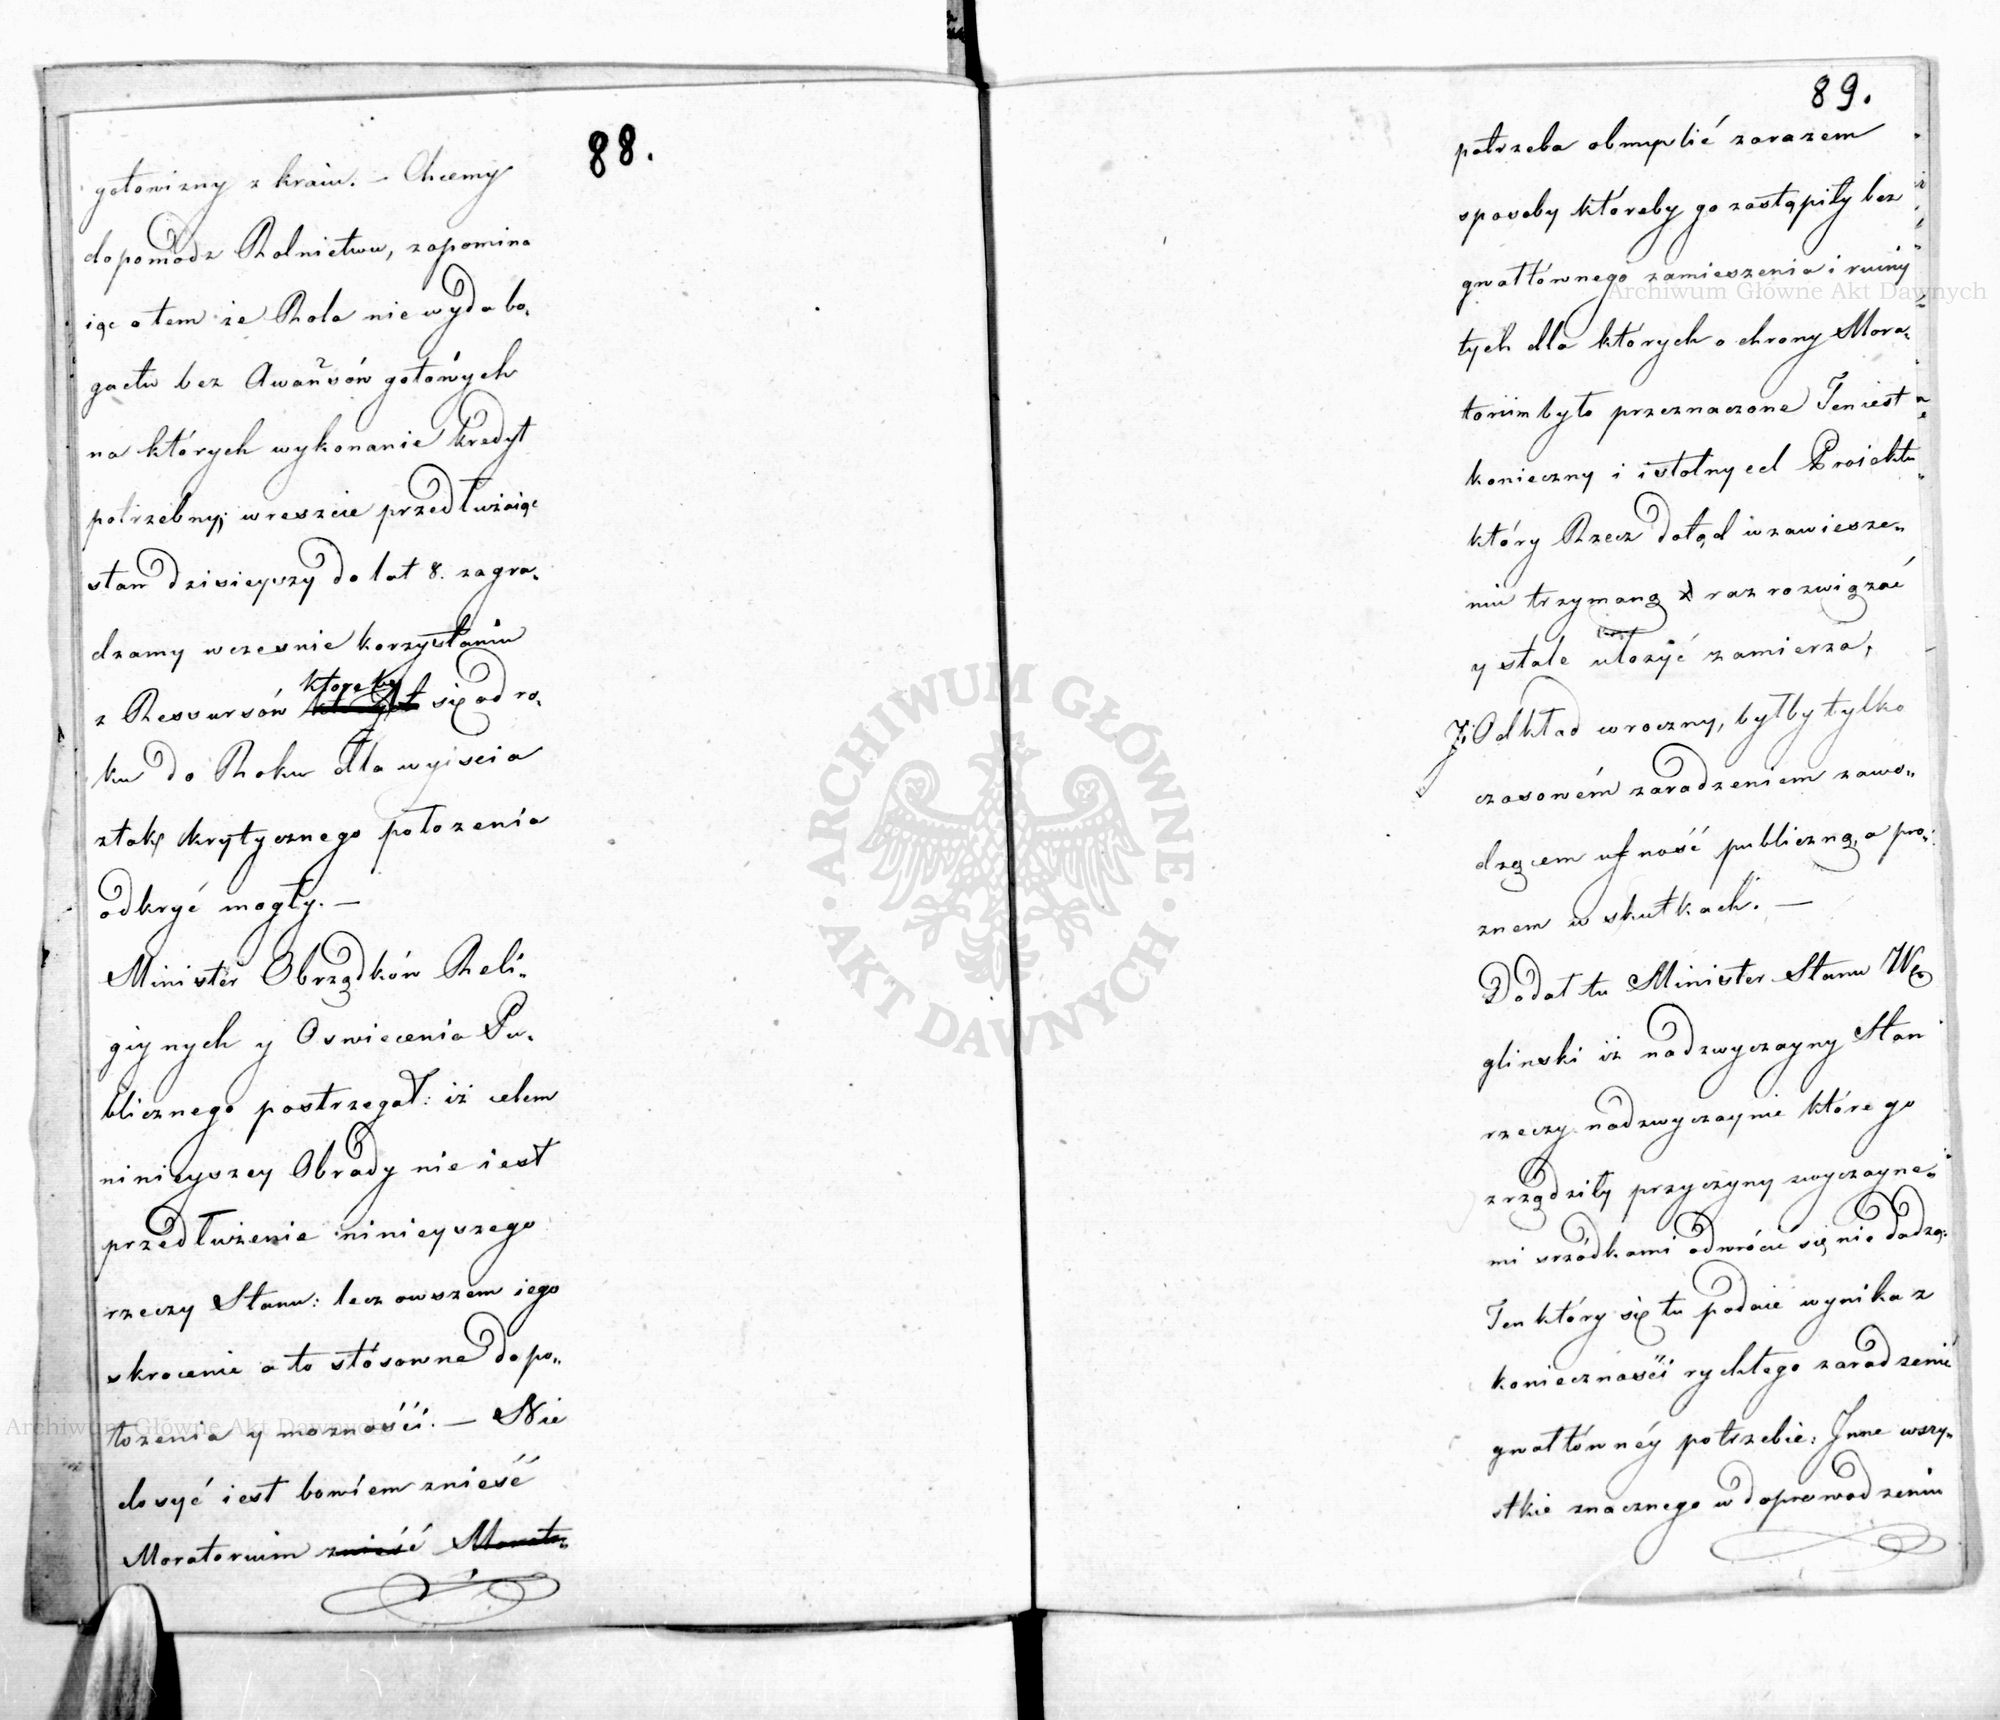 88.
gotowizny z kraiu. – Chcemy
dopomodz Rolnictwu, zapomina
iąc o tem że Rola nie wyda bo„
gactw bez Awansów gotówych
na których wykonanie kredyt
potrzebny; wreszcie przedłużaiąc
stan dzisieyszy do lat 8. zagra„
dzamy wczesnie korzystaniu
z Ressursów któreby się od ro„
ku do Roku dla wyiscia
z tak krytycznego położenia
odkryć mogły. –
Minister Obrządków Reli„
giynych y Oswiecenia Pu„
blicznego postrzegał: iż celem
ninieyszey Obrady nie iest
przedłużenie ninieyszego
rzeczy Stanu: lecz owszem iego
skrocenie a to stósowne do po„
łozenia y mozności. – Nie
dosyć iest bowiem znieść
Moratorium znieść Morato„
89.
potrzeba obmyslić zarazem
sposoby któreby go zastąpiły bez
gwałtównego zamieszenia i ruiny
tych dla których ochrony Mora„
torium było przeznaczone Ten iest
konieczny i istotny cel Proiektu
który Rzecz dotąd w zawiesze„
niu trzymaną raz rozwiązać
y stale ułożyć zamierza,
Odkład wroczny, byłby tylko
czasowém zaradzeniem zawo„
dzącem ufność publiczną, a pro„
znem w skutkach. –
Dodał tu Minister Stanu Wę
glinski iż nadzwyczayny Stan
rzeczy nadzwyczaynie którego
zrządziły przyczyny zwyczayne„
mi srzódkami odwrócić się nie dadzą:
Ten który się tu podaie wynika z
konieczności rychłego zaradzenia
gwałtównéy potrzebie: Jnne wszy„
stkie znacznego w doprowadzeniu
Archiwum Główne Akt Dawnych
Archiwum Główne Akt Dawnych
ARCHIWUM GŁÓWNE
AKT DAWNYCH